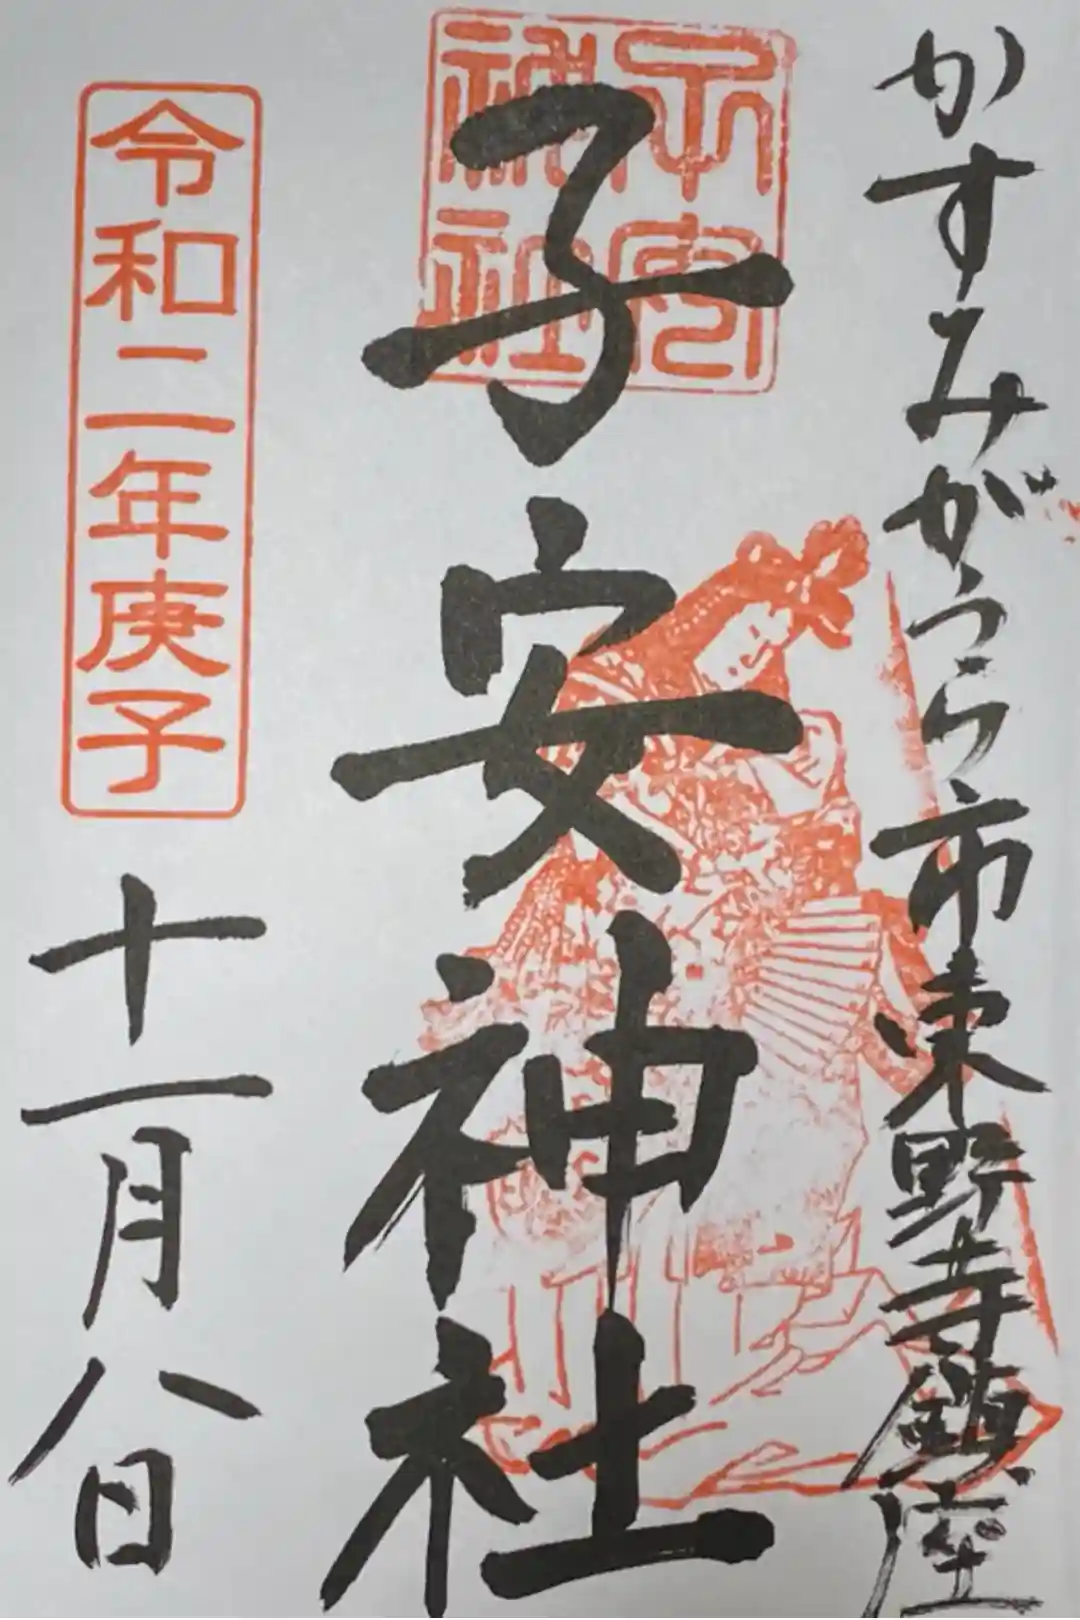 かすみがうら市東野寺鎮座
子安神社
子安
神社
令和二年庚子
十一月八日